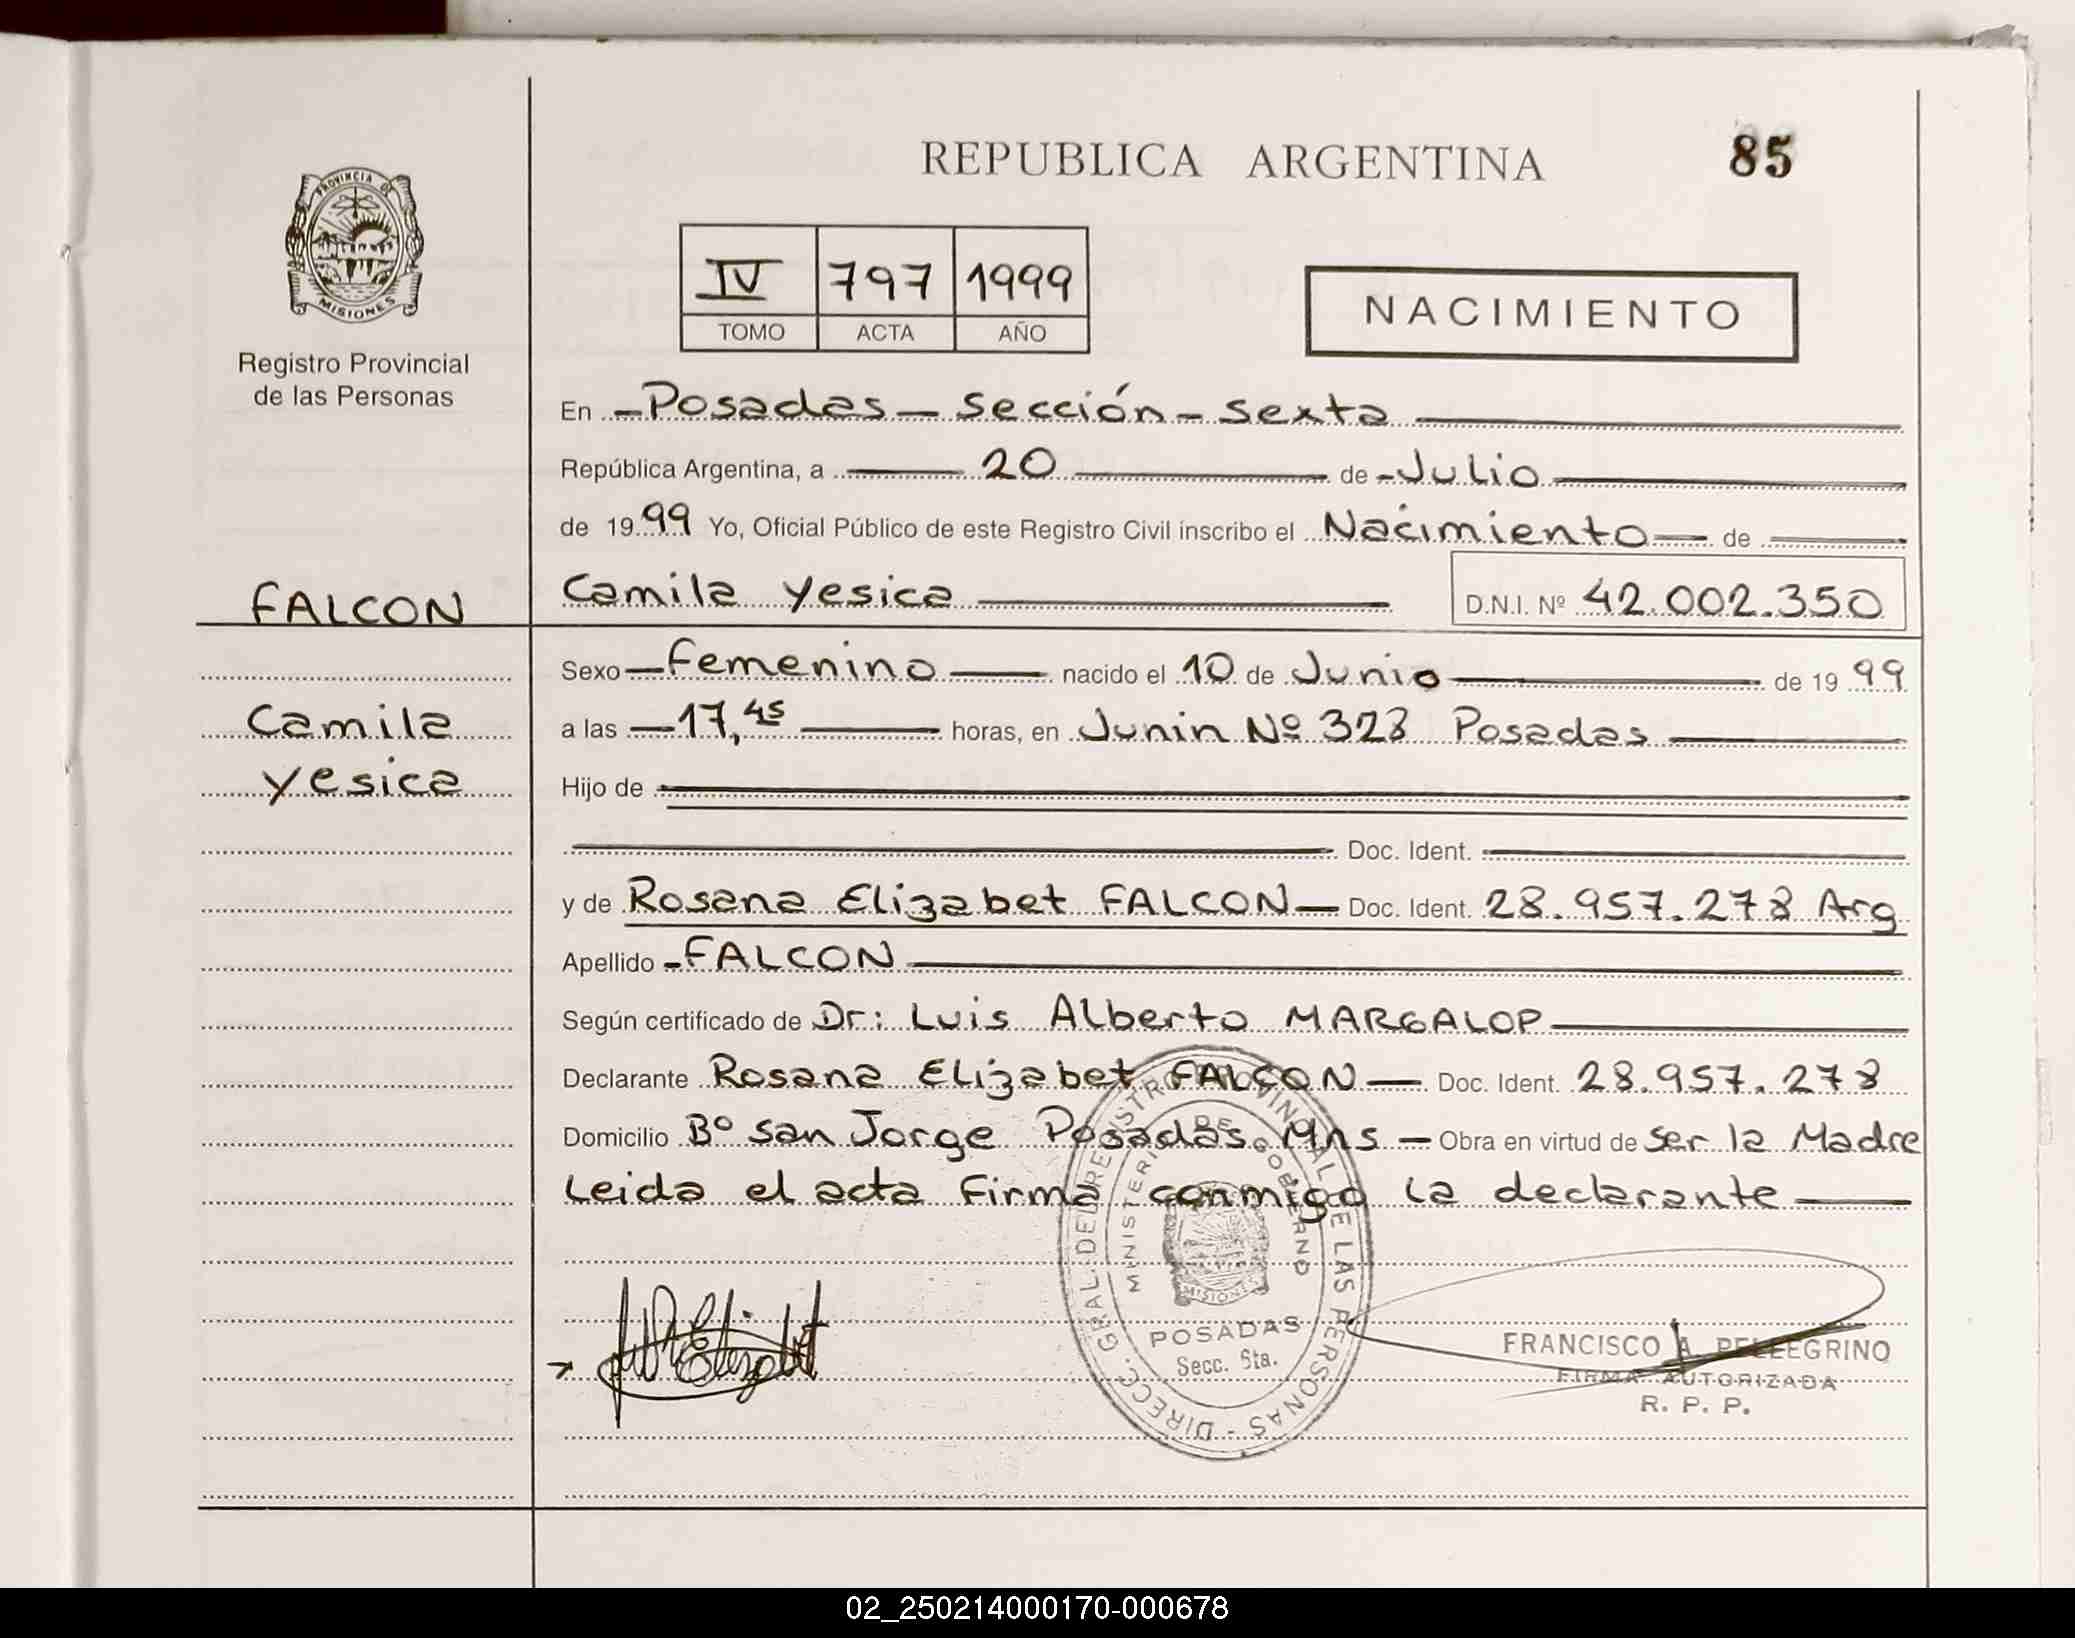 REPUBLICA ARGENTINA
85
PROVINCIA DE
MISIONES
Registro Provincial
de las Personas
IV 797 1999
TOMO ACTA AÑO
NACIMIENTO
En Posadas - Sección - Sexta
República Argentina, a 20 de Julio
de 1999 Yo, Oficial Público de este Registro Civil inscribo el Nacimiento de
FALCON
Camila Yesica D.N.I. Nº 42.002.350
Sexo Femenino nacido el 10 de Junio de 1999
Camila
a las 17,45 horas, en Junin Nº 328 Posadas
Yesica
Hijo de
Doc. Ident.
y de Rosana Elizabet FALCON Doc. Ident. 28.957.278 Arg
Apellido FALCON
Según certificado de Dr: Luis Alberto MARGALOP
Declarante Rosana Elizabet FALCON Doc. Ident. 28.957.278
Domicilio Bº San Jorge Posadas Mns Obra en virtud de Ser la Madre
Leida el acta Firma conmigo la declarante
DIRECC. GRAL. DEL REGISTRO PROVINCIAL DE LAS PERSONAS
MINISTERIO DE GOBIERNO
MISIONES
POSADAS
Secc. 6ta.
FRANCISCO A. PELLEGRINO
FIRMA AUTORIZADA
R. P. P.
02_250214000170-000678